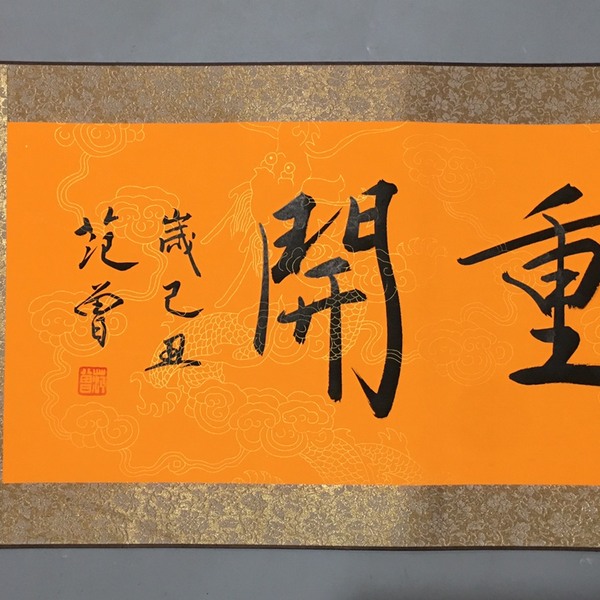 重開
歲己丑
范曾